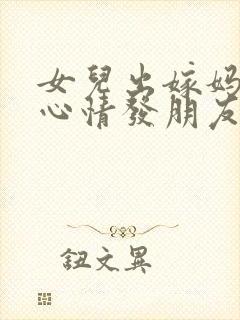 女兒出嫁媽
心情發朋友
鈕文異